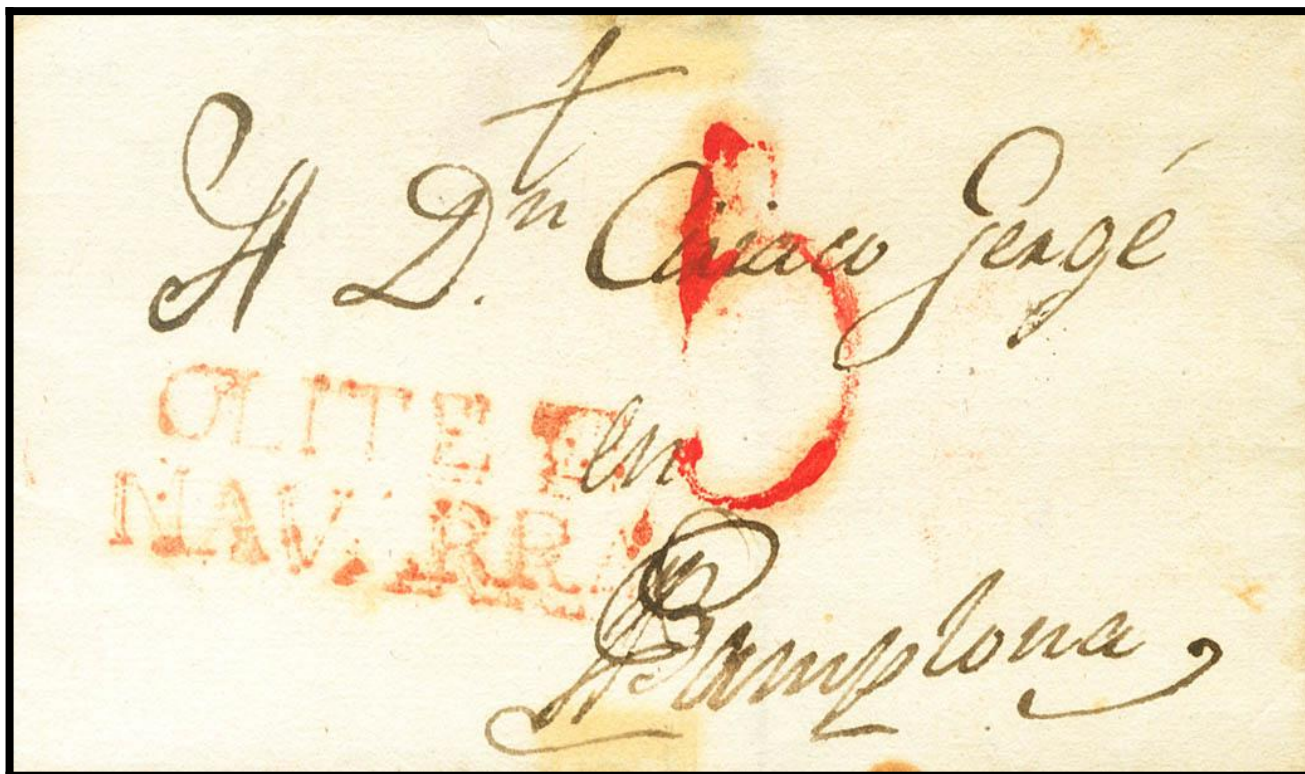 A D.n Ciriaco Gergé
5
OLITE E.
NAVARRA
en
Pamplona